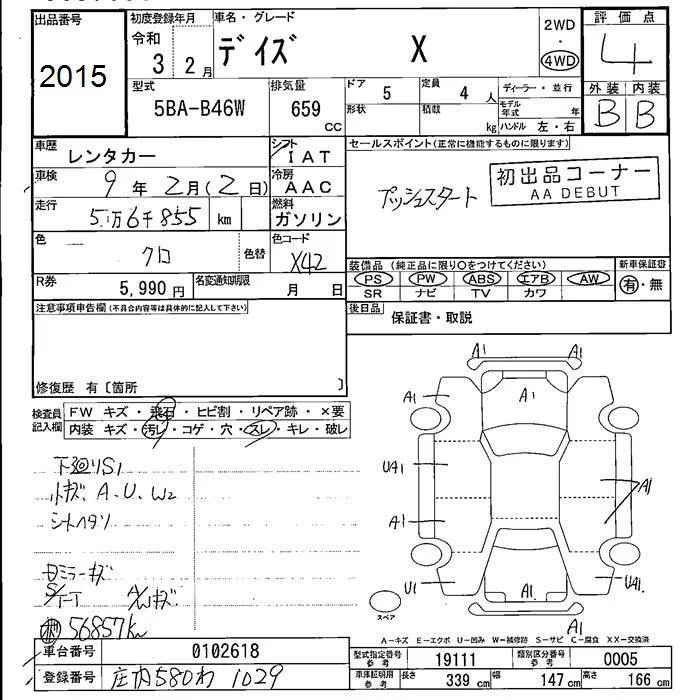 出品番号
2015
初度登録年月
令和
3 2月
車名・グレード
デイズ X
2WD
・
4WD
評価点
4
型式
5BA-B46W
排気量
659
cc
ドア
5
定員
4 人
形状
積載
kg
ディーラー・並行
モデル年式 年
ハンドル 左・右
外装 内装
B B
車歴
レンタカー
シフト
IAT
車検
9年2月(2日)
冷房
AAC
走行
5万6千855 km
燃料
ガソリン
色
クロ
色替
色コード
X42
R券
5,990円
名変通知期限
月 日
セールスポイント(正常に機能するものに限ります)
プッシュスタート
初出品コーナー
AA DEBUT
装備品(純正品に限り○をつけてください)
PS PW ABS エアB AW
SR ナビ TV カワ
新車保証書
有・無
後日品
保証書・取説
注意事項申告欄(不具合内容等は具体的に記入して下さい)
修復歴 有〔箇所 〕
検査員
記入欄
FW キズ・飛石・ヒビ割・リペア跡・×要
内装 キズ・汚レ・コゲ・穴・スレ・キレ・破レ
下廻りS1
小キズ A.U.W2
シートヘタリ
ロミラーキズ
S/T-T A/Wキズ
56857km
A1
A1
A1
A1
UA1
A1
A1
U1
A1
UA1
A1
スペア
A-キズ E-エクボ U-凹み W-補修跡 S-サビ C-腐食 XX-交換済
車台番号
0102618
登録番号
庄内580わ 1029
型式指定番号
参考
19111
類別区分番号
参考
0005
車庫証明用
参考
長さ 339 cm 幅 147 cm 高さ 166 cm